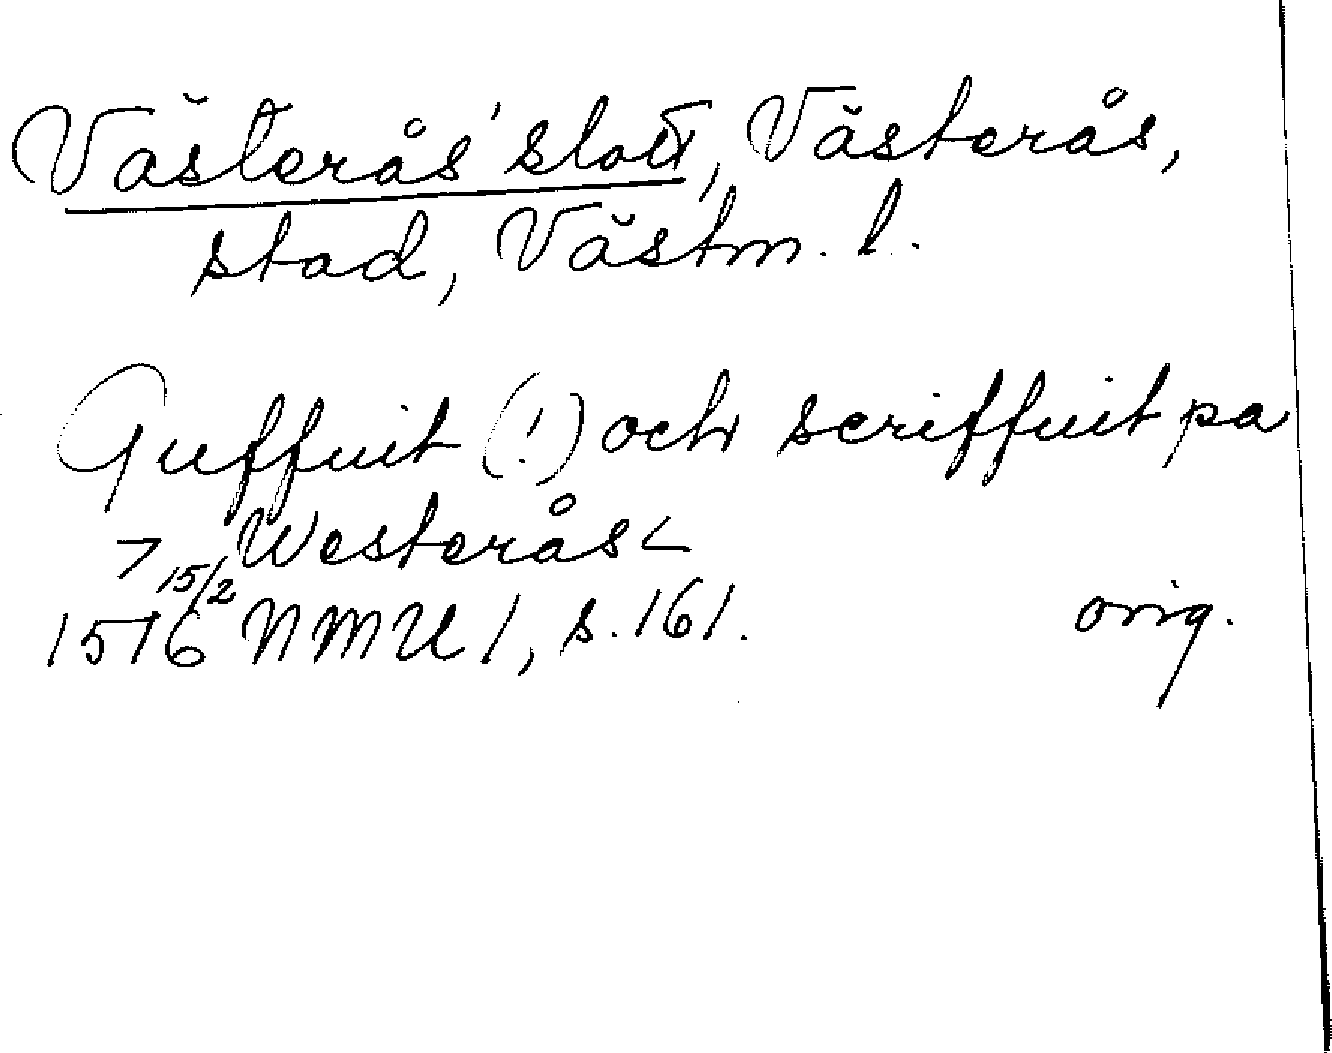 Västerås slott, Västerås,
stad, Västm. l.
Guffuit (!) och scriffuit pa
> Westerås <
15/2
1516 NMU 1, s. 161. orig.